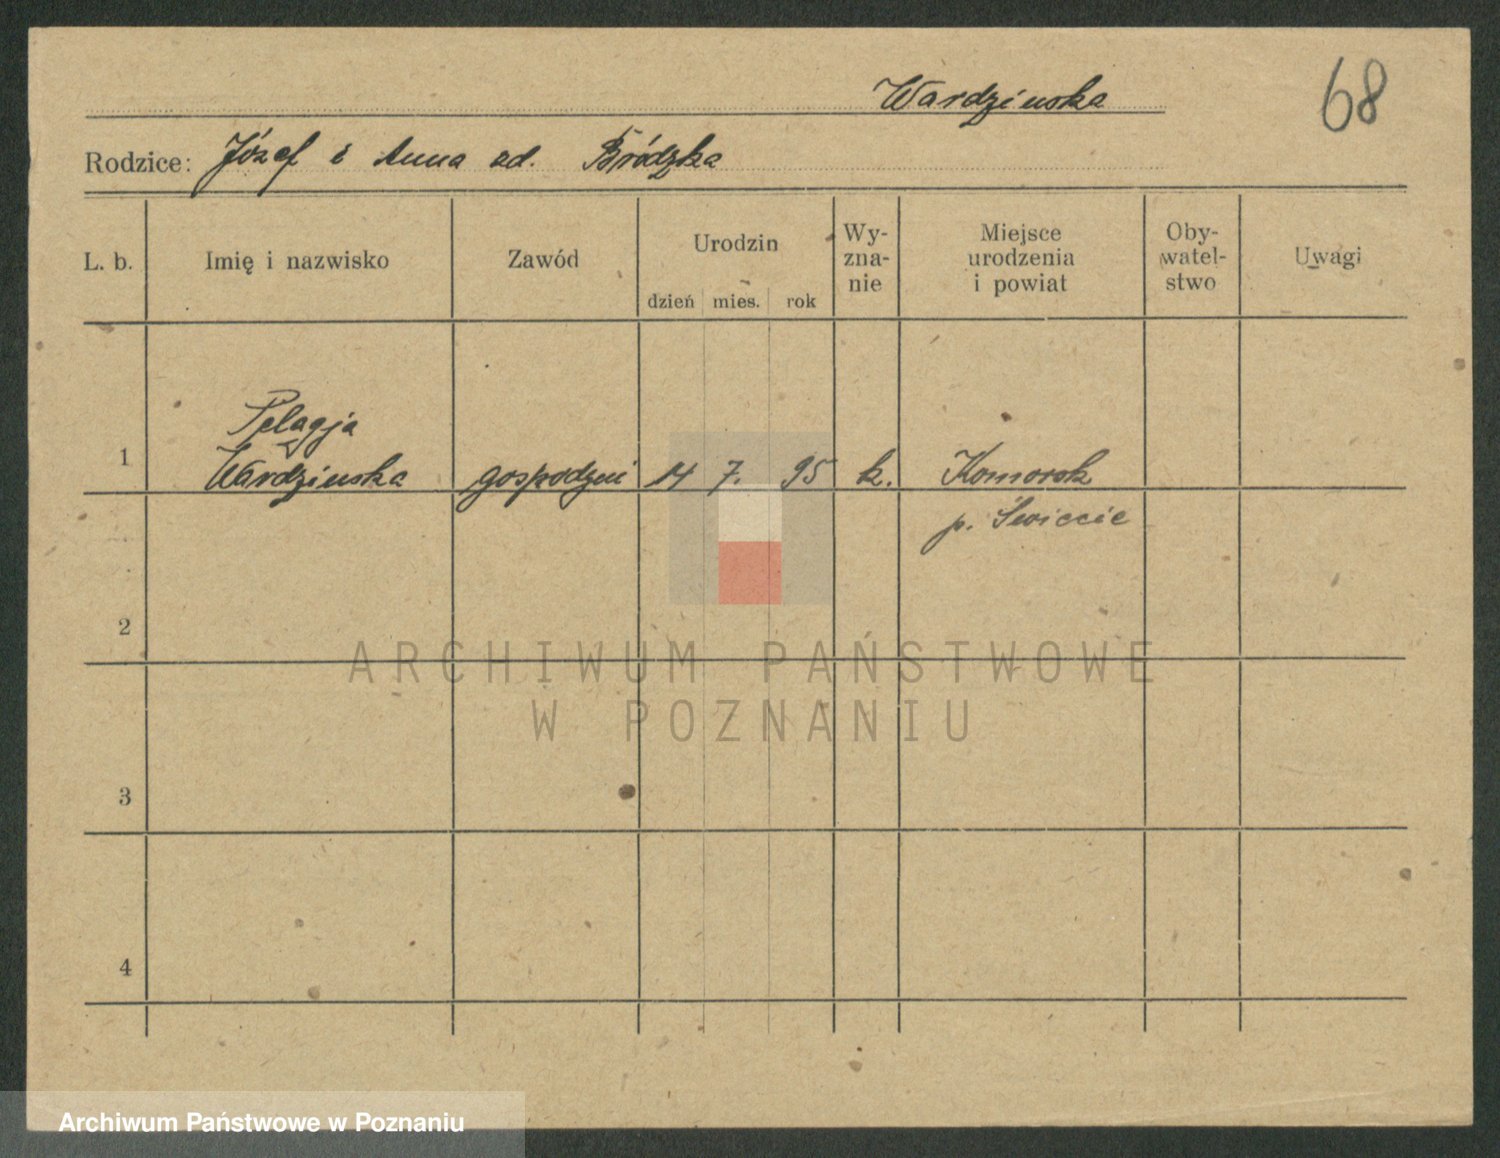 Wardzinska
68
Rodzice: Józef i Anna zd. Bródzka
L. b.
Imię i nazwisko
Zawód
Urodzin
dzień mies. rok
Wy-
zna-
nie
Miejsce
urodzenia
i powiat
Oby-
watel-
stwo
Uwagi
1
Pelagja
Wardzinska
gospodyni
14 7. 95
k.
Komorsk
p. Świecie
2
3
4
ARCHIWUM PAŃSTWOWE
W POZNANIU
Archiwum Państwowe w Poznaniu